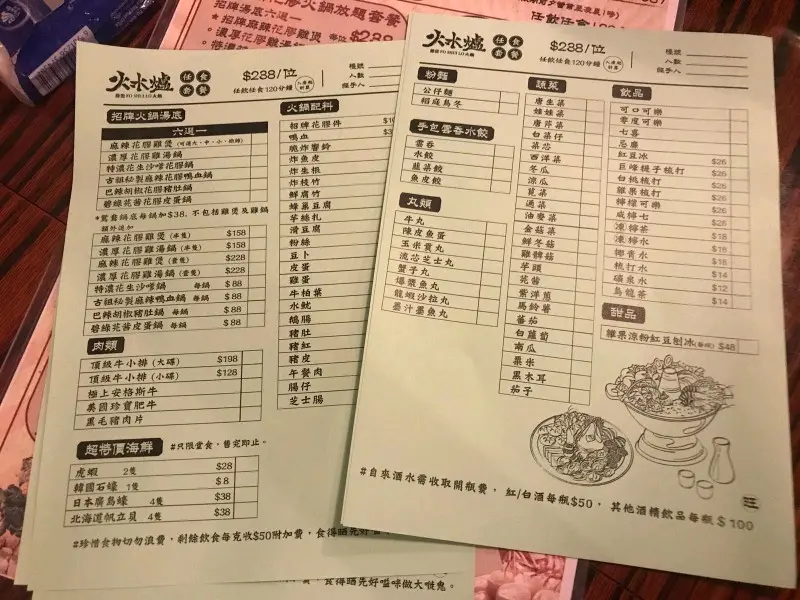 火水爐
任食套餐
$288/位
任飲任食120分鐘
檯號
人數
經手人
招牌火鍋湯底
六選一
麻辣花膠雞煲
濃厚花膠雞湯鍋
特濃花生沙嗲花膠鍋
古祖秘製麻辣花膠鴨血鍋
巴辣胡椒花膠豬肚鍋
碧綠芫茜花膠皮蛋鍋
*鴛鴦鍋底每鍋加$38，不包括雞煲及雞鍋
額外追加
麻辣花膠雞煲(半隻) $158
濃厚花膠雞湯鍋(半隻) $158
麻辣花膠雞煲(壹隻) $228
濃厚花膠雞湯鍋(壹隻) $228
特濃花生沙嗲鍋 每鍋 $88
古祖秘製麻辣鴨血鍋 每鍋 $88
巴辣胡椒豬肚鍋 每鍋 $88
碧綠芫茜皮蛋鍋 每鍋 $88
肉類
頂級牛小排(大碟) $198
頂級牛小排(小碟) $128
極上安格斯牛
美國珍寶肥牛
黑毛豬肉片
超特價海鮮 #只限堂食，售完即止。
虎蝦 2隻 $28
韓國石蠔 1隻 $8
日本廣島蠔 4隻 $38
北海道帆立貝 4隻 $38
#珍惜食物切勿浪費，剩餘飲食每克收$50附加費，食得晒先好
食得晒先好嗌味做大嘥鬼。
火鍋配料
招牌花膠件
鴨血
脆炸響鈴
炸魚皮
炸生根
炸枝竹
鮮腐竹
蜂巢豆腐
芋絲扎
滑豆腐
粉絲
豆卜
皮蛋
雞蛋
牛柏葉
水魷
鴨腸
豬肚
豬紅
豬皮
午餐肉
腸仔
芝士腸
火水爐
任食套餐
$288/位
任飲任食120分鐘
檯號
人數
經手人
粉麵
公仔麵
稻庭烏冬
手包雲吞水餃
雲吞
水餃
韮菜餃
魚皮餃
丸類
牛丸
陳皮魚蛋
玉米貢丸
流芯芝士丸
蟹子丸
爆漿魚丸
龍蝦沙拉丸
墨汁墨魚丸
蔬菜
唐生菜
娃娃菜
唐莎菜
白菜仔
菜芯
西洋菜
冬瓜
涼瓜
莧菜
通菜
油麥菜
金菇菜
鮮冬菇
雞髀菇
芋頭
芫茜
紫洋蔥
馬鈴薯
蕃茄
白蘿蔔
南瓜
粟米
黑木耳
茄子
飲品
可口可樂
零度可樂
七喜
忌廉
紅豆冰 $26
巨峰提子梳打 $26
白桃梳打 $26
雜果梳打 $26
檸檬可樂 $26
咸檸七 $26
凍檸茶 $18
凍檸水 $18
椰青水 $18
梳打水 $14
礦泉水 $12
烏龍茶 $14
甜品
雜果涼粉紅豆刨冰 $48
#自來酒水需收取開瓶費，紅/白酒每瓶$50，其他酒精飲品每瓶$100